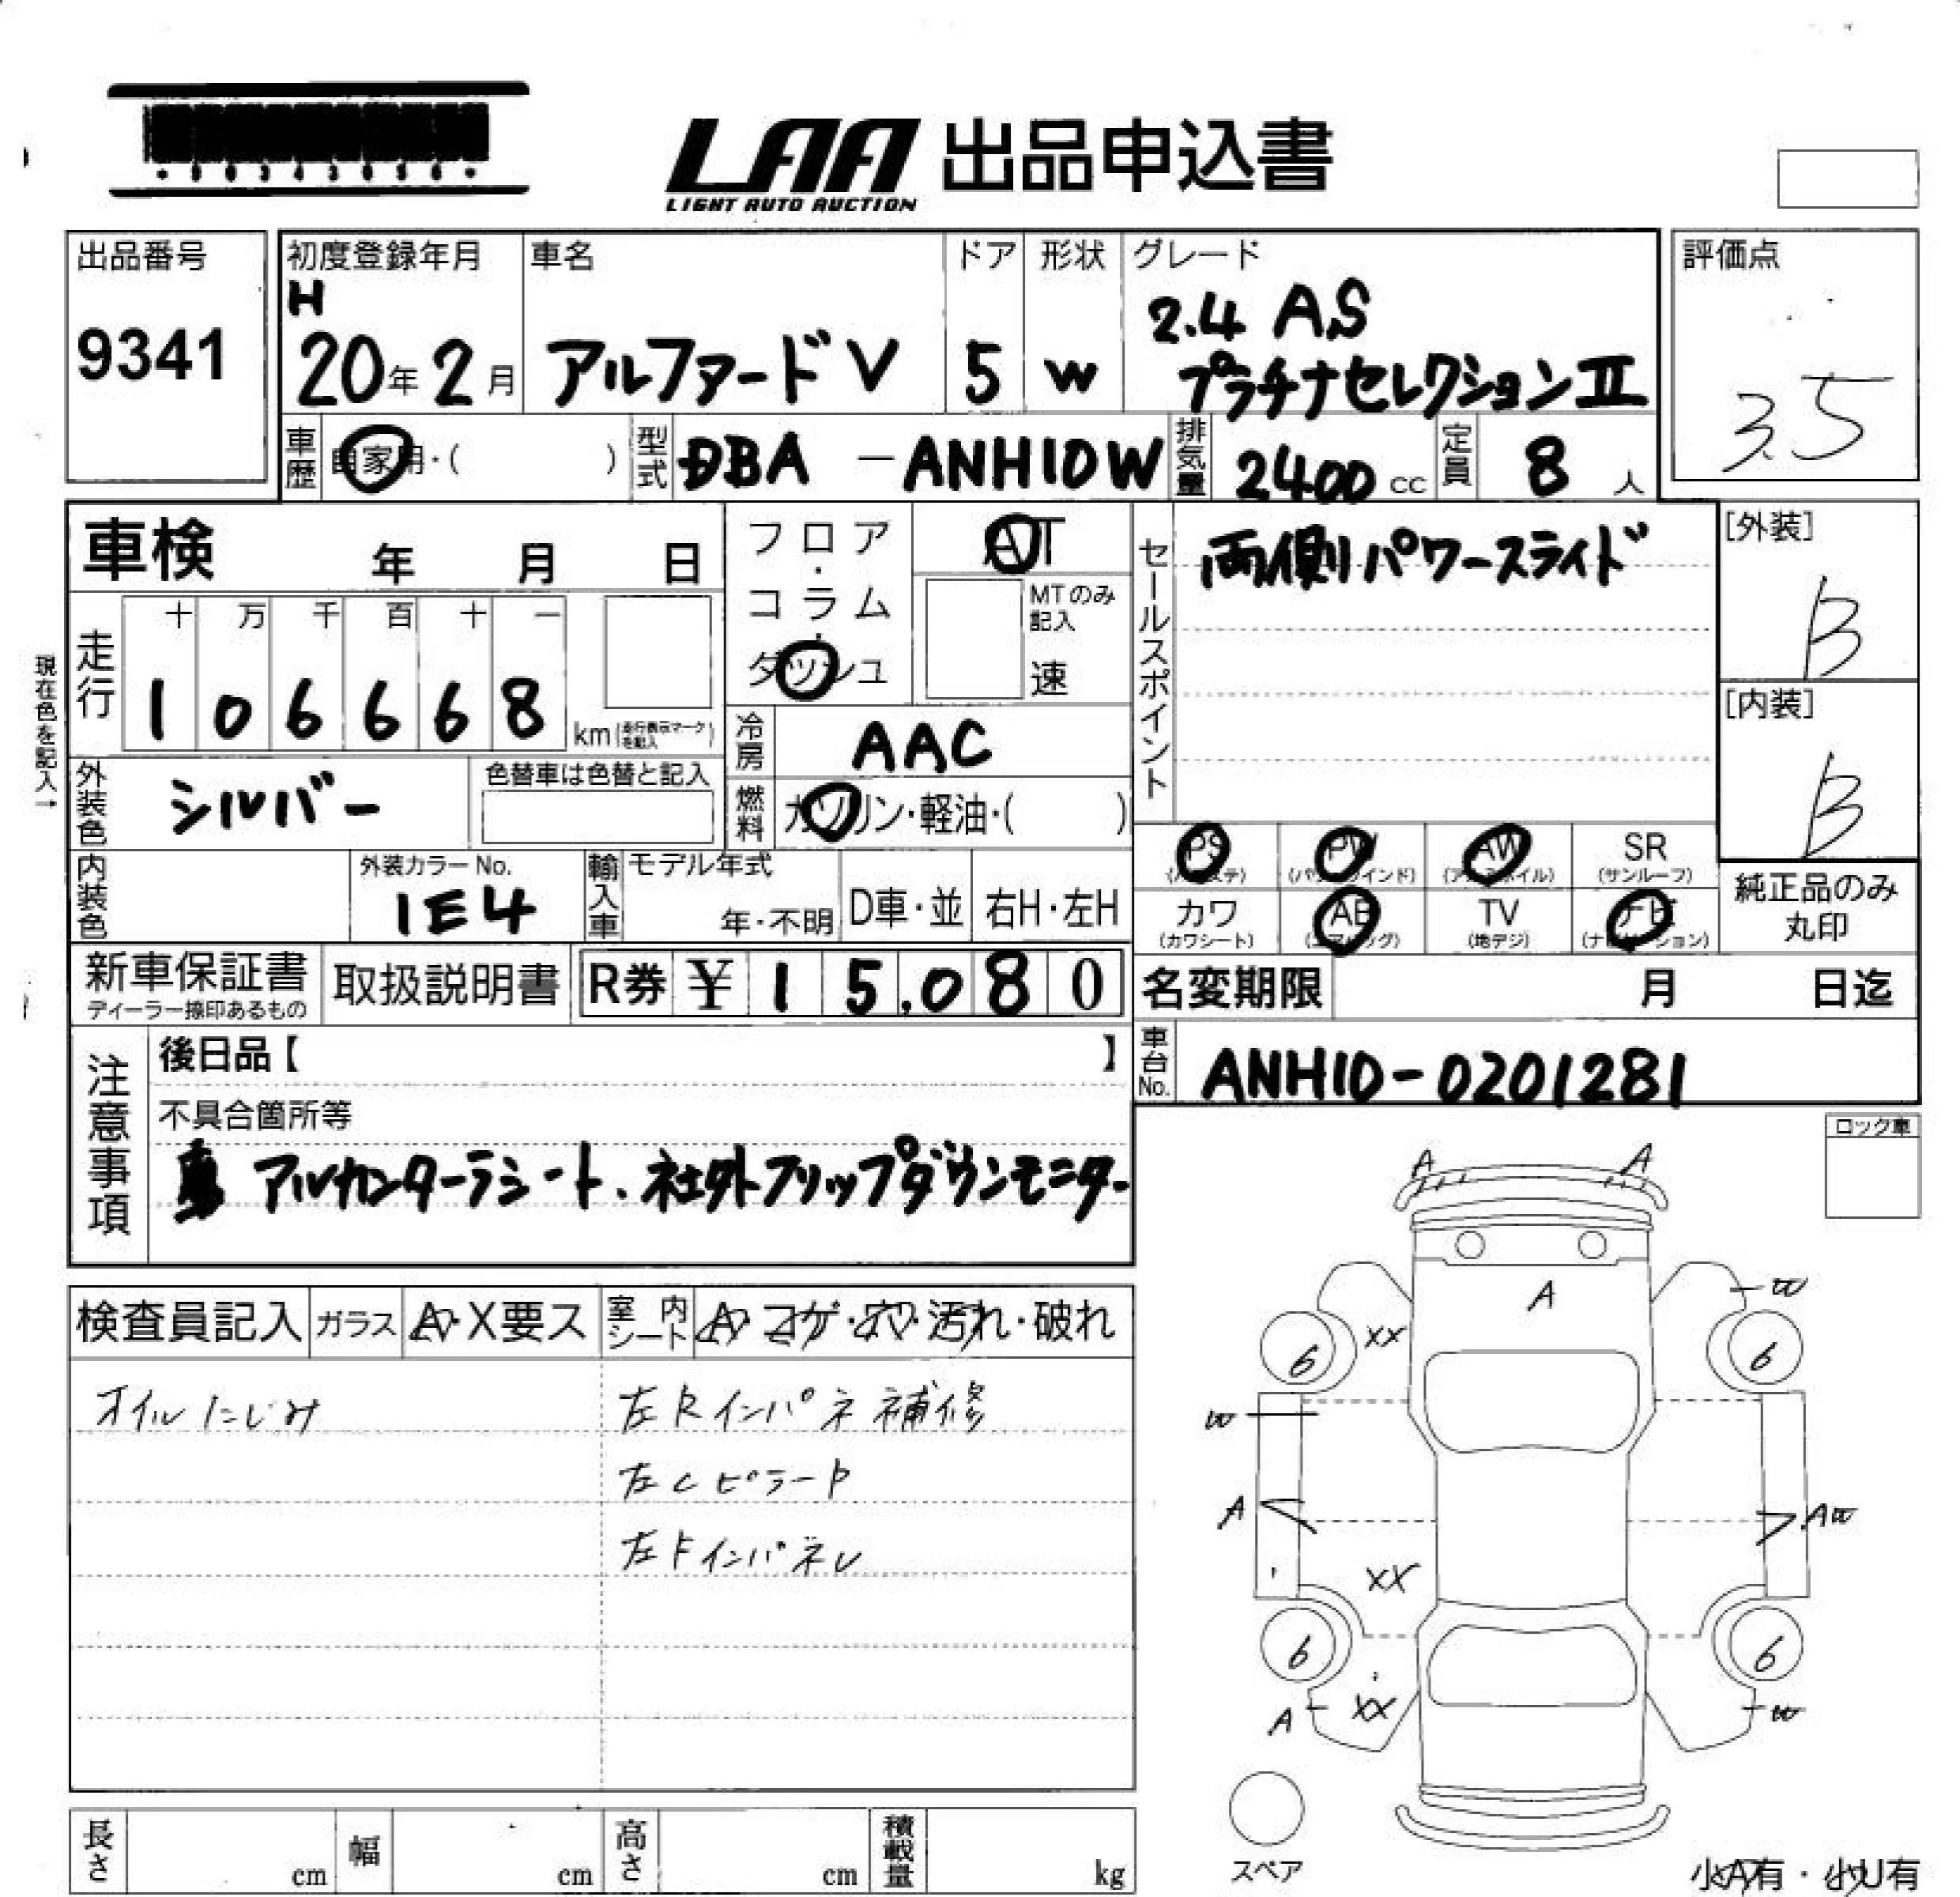 LAA 出品申込書
LIGHT AUTO AUCTION
出品番号
9341
初度登録年月
H
20年2月
車名
アルファードV
ドア
5
形状
W
グレード
2.4 AS
プラチナセレクションⅡ
評価点
3.5
車歴
自家用・( )
型式
DBA -ANH10W
排気量
2400 cc
定員
8 人
車検 年 月 日
フロア・コラム・ダッシュ
AT
MTのみ記入
速
セールスポイント
両側パワースライド
[外装]
B
[内装]
B
現在色を記入→
走行
十 万 千 百 十 一
1 0 6 6 6 8
km(走行表示マークを記入)
冷房
AAC
外装色
シルバー
色替車は色替と記入
燃料
ガソリン・軽油・( )
PS
(パワステ)
PW
(パワーウインド)
AW
(アルミホイル)
SR
(サンルーフ)
カワ
(カワシート)
AB
(エアバッグ)
TV
(地デジ)
ナビ
(ナビゲーション)
純正品のみ
丸印
内装色
外装カラーNo.
1E4
輸入車
モデル年式
年・不明
D車・並
右H・左H
新車保証書
ディーラー捺印あるもの
取扱説明書
R券 ¥ 1 5,0 8 0
名変期限 月 日迄
注意事項
後日品【 】
車台No.
ANH10-0201281
不具合箇所等
アルカンターラシート、社外フリップダウンモニター
ロック車
検査員記入
ガラス
A・X要ス
室内
シート
A・コゲ・穴・汚れ・破れ
オイルにじみ
左Rインパネ補修
左CピラーP
左Fインパネレ
A A
A
W
XX
6 6
W
A
AW
XX
6 6
A XX W
スペア
小A有・小U有
長さ cm
幅 cm
高さ cm
積載量 kg